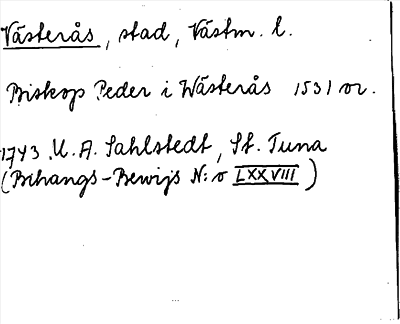 Västerås, stad, Västm. l.
Biskop Peder i Wästerås 1531 or.
1743 U. A. Sahlstedt, St. Tuna
(Bihangs-Bewijs N:o LXXVIII)